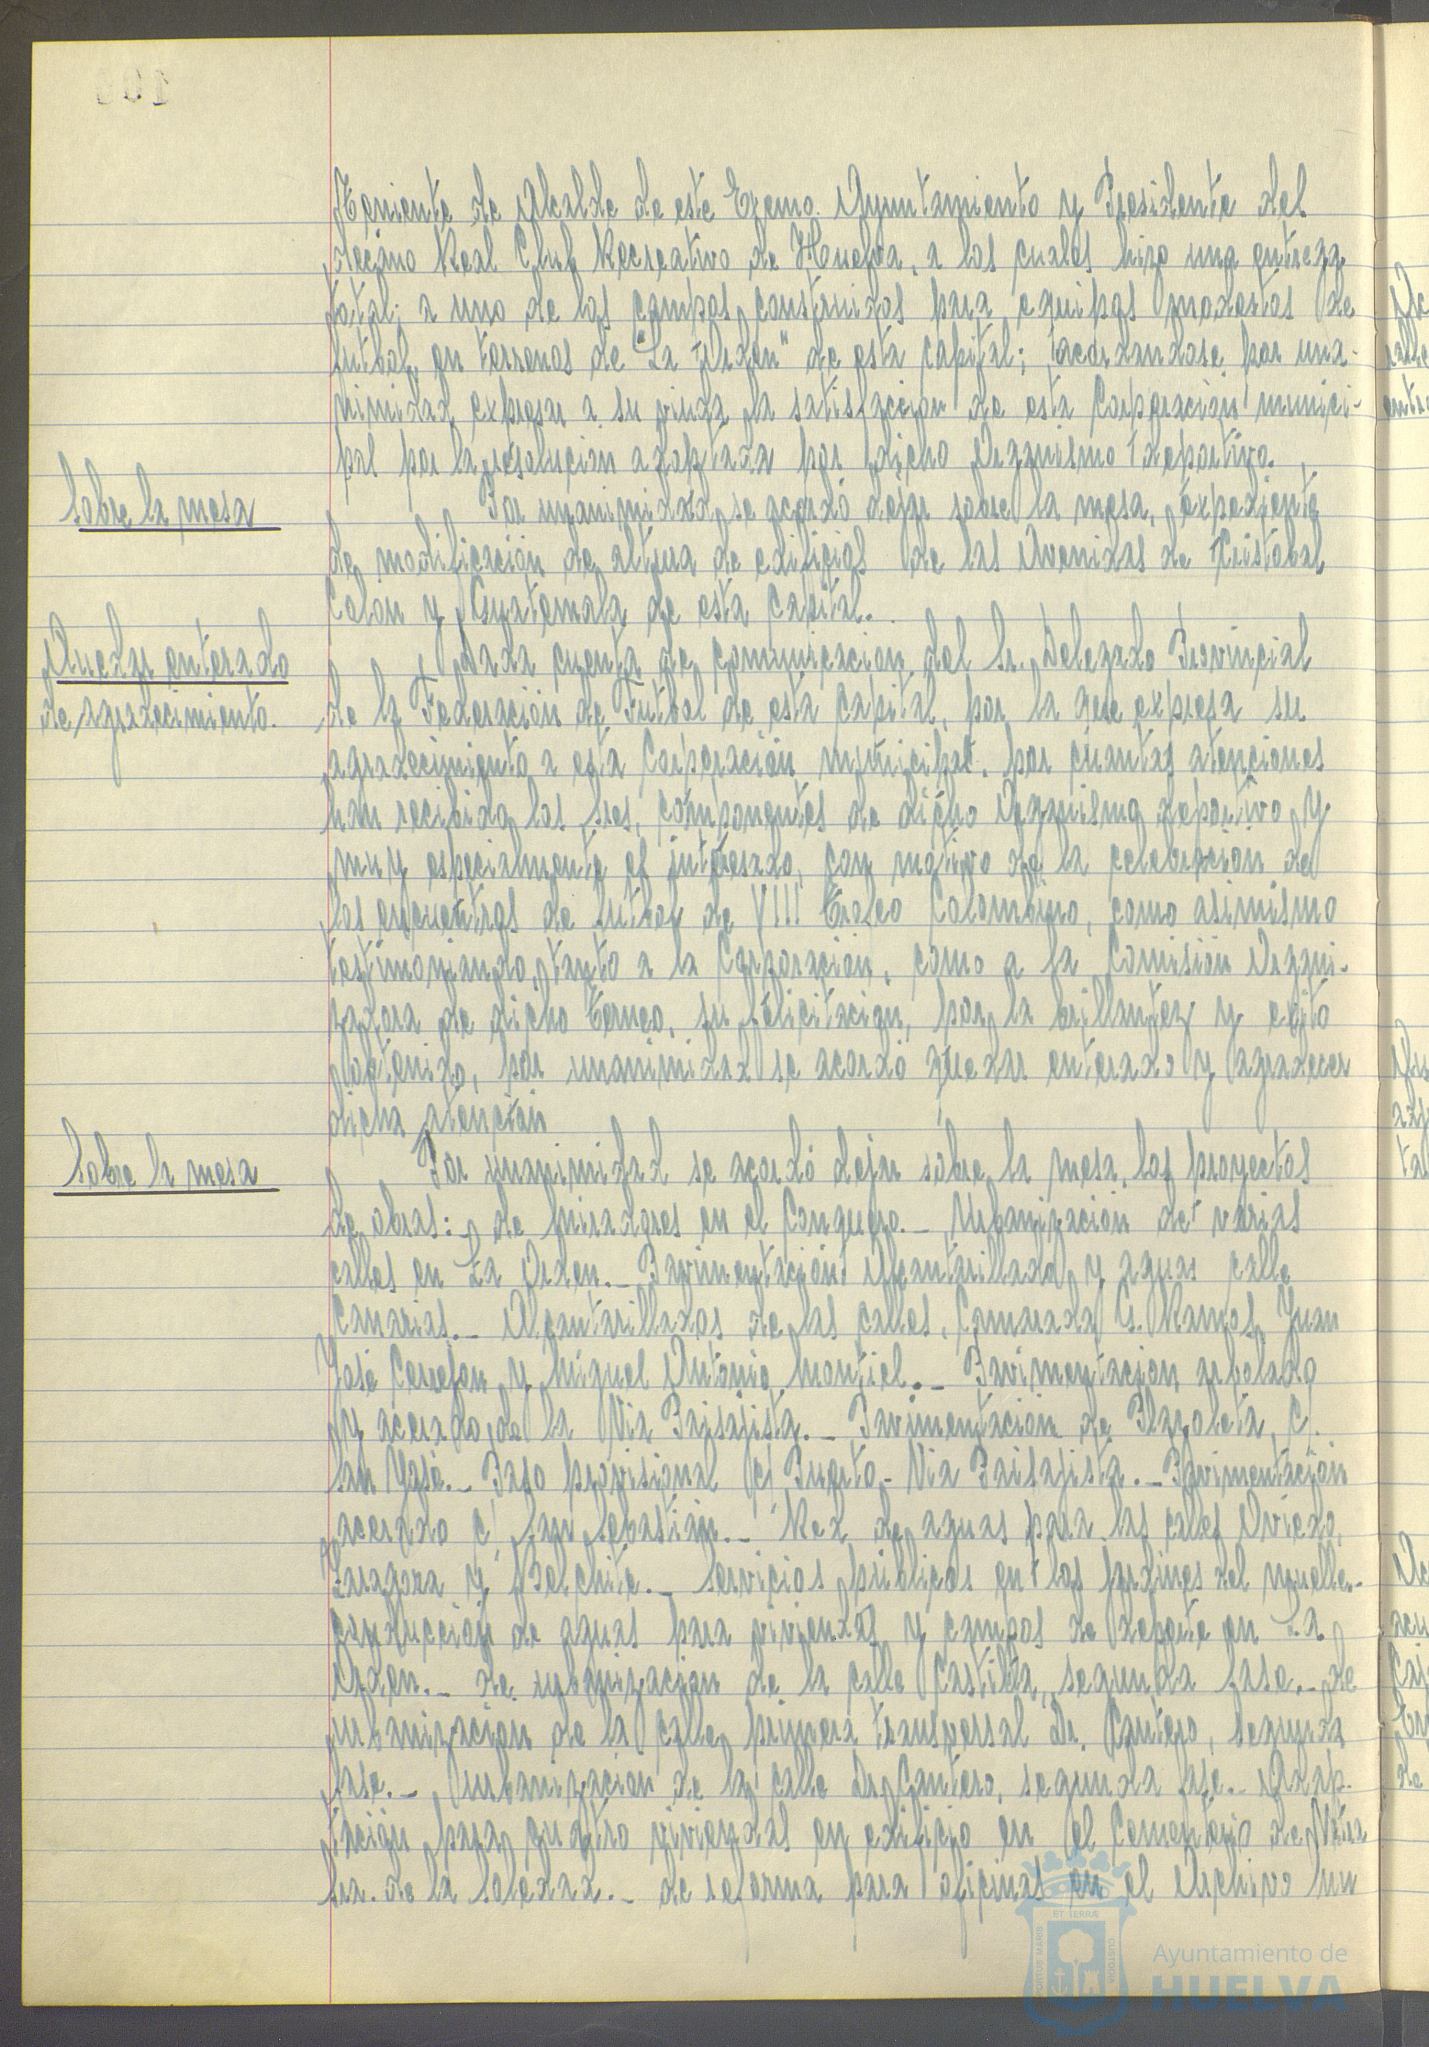 Teniente de Alcalde de este Excmo. Ayuntamiento y Presidente del
decano Real Club Recreativo de Huelva, a los cuales hizo una entrega
total; a uno de los campos construidos para equipos modestos de
futbol, en terrenos de "La Orden" de esta capital; acordandose por una-
nimidad expresar a su viuda la satisfacción de esta Corporación munici-
pal por la resolución adoptada por dicho Organismo deportivo.
Sobre la mesa
Por unanimidad se acordó dejar sobre la mesa, expediente
de modificación de altura de edificios de las Avenidas de Cristobal
Colon y Guatemala de esta Capital.
Quedar enterado
de agradecimiento.
Dada cuenta de comunicación del Sr. Delegado Provincial
de la Federación de Futbol de esta capital, por la que expresa su
agradecimiento a esta Corporación municipal, por cuantas atenciones
han recibido los Sres. componentes de dicho Organismo deportivo y
muy especialmente el interesado, con motivo de la celebración de
los encuentros de futbol de VIII Trofeo Colombino, como asimismo
testimoniando, tanto a la Corporación, como a la Comisión Organi-
zadora de dicho Torneo, su felicitación, por la brillantez y exito
obtenido, por unanimidad se acordó quedar enterado y agradecer
dicha atención
Sobre la mesa
Por unanimidad se acordó dejar sobre la mesa, los proyectos
de obras: de miradores en el Conquero.- Urbanización de varias
calles en La Orden.- Pavimentación Alcantarillado y aguas calle
Canarias.- Alcantarillados de las calles, Camarada G. Ramos, Juan
José Cerrejon y Miguel Antonio Montiel.- Pavimentación arbolado
y acerado de la Via Paisajista.- Pavimentación de Plazoleta C/.
San José.- Paso provisional C/ Puerto - Via Paisajista.- Pavimentación
acerado C/ San Sebastian.- Red de aguas para las calles Oviedo,
Zaragoza y Belchite.- Servicios públicos en los jardines del muelle.-
Conducción de aguas para viviendas y campos de deporte en La
Orden.- de urbanización de la calle Castilla, segunda fase.- de
urbanización de la calle primera transversal Dr. Cantero, segunda
fase.- Urbanización de la calle Dr. Cantero, segunda fase.- Adap-
tación para cuatro viviendas en edificio en el Cementerio de Ntra
Sra. de la Soledad.- de reforma para oficinas en el Archivo mu
PORTUS MARIS
ET TERRÆ
CUSTODIA
Ayuntamiento de
HUELVA